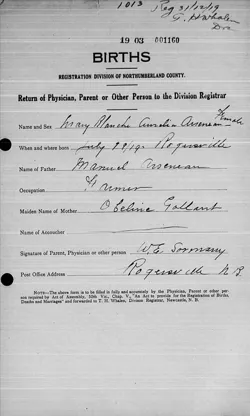 1013 Reg 31/12/19
T. H. Whalen
19 03 001160
BIRTHS
REGISTRATION DIVISION OF NORTHUMBERLAND COUNTY.
Return of Physician, Parent or Other Person to the Division Registrar
Name and Sex Mary Blanche Aurelia Arseneau Female
When and where born July 1919. Rogersville
Name of Father Manuel Arseneau
Occupation Farmer
Maiden Name of Mother Obeline Gallant
Name of Accoucher
Signature of Parent, Physician or other person W. E. Sormany
Post Office Address Rogersville N.B.
NOTE.—The above form is to be filled in fully and accurately by the Physician, Parent or other person required by Act of Assembly, 50th Vic., Chap. V., "An Act to provide for the Registration of Births, Deaths and Marriages" and forwarded to T. H. Whalen, Division Registrar, Newcastle, N.B.